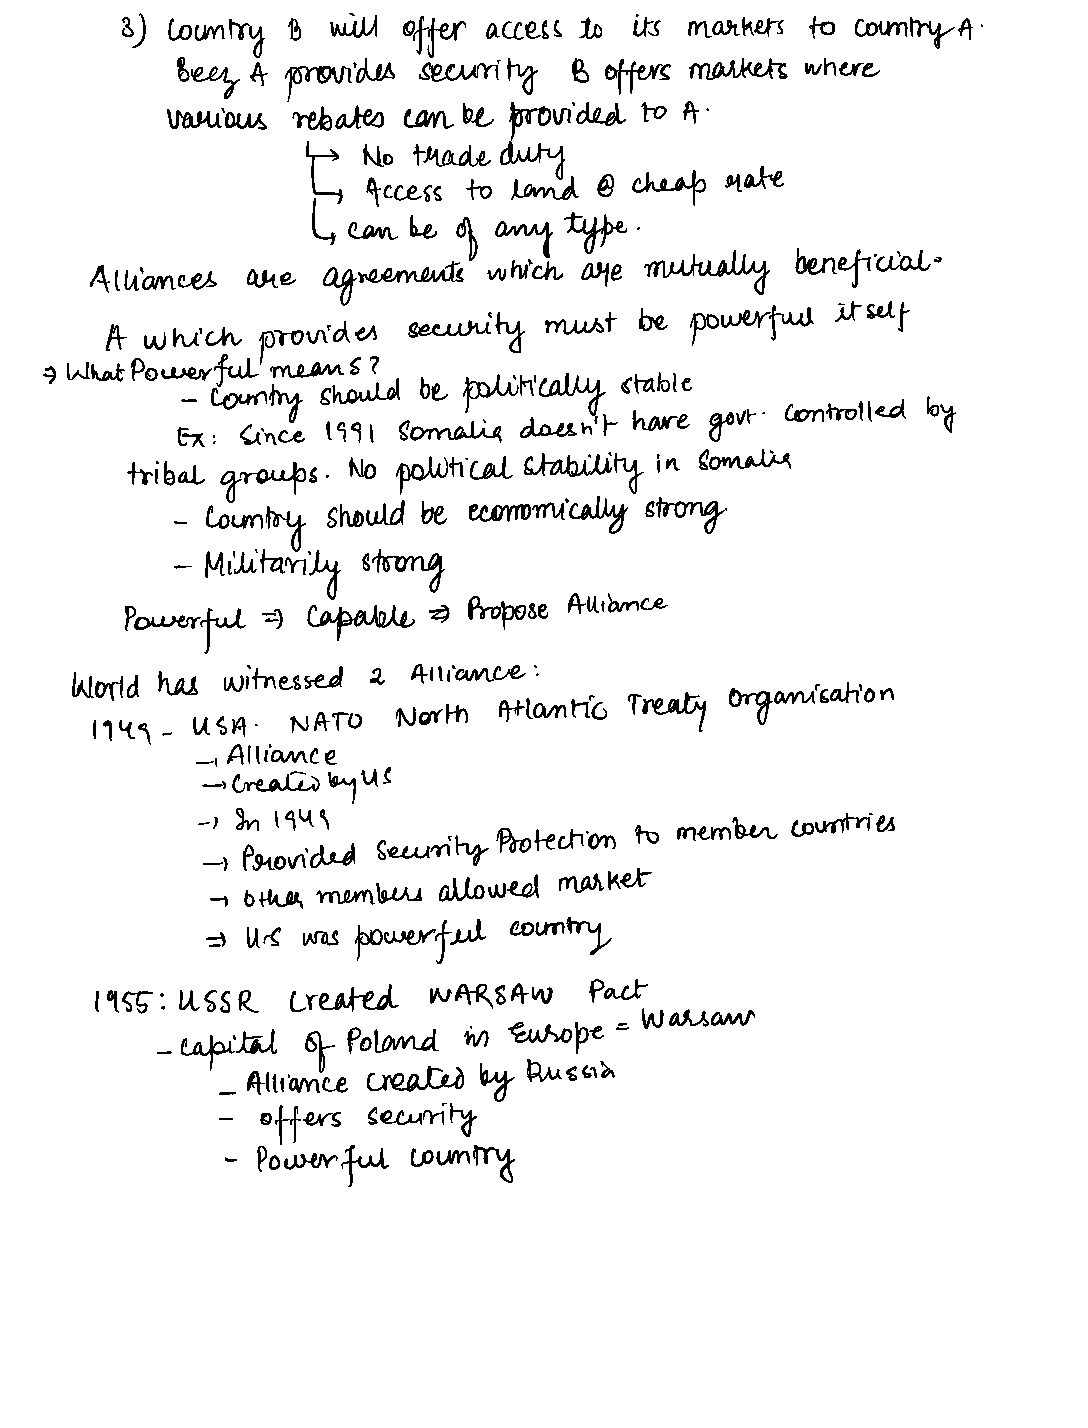 3) Country B will offer access to its markets to country A.
Becz A provides security B offers markets where
various rebates can be provided to A.
↳ No trade duty
↳ Access to land @ cheap rate
↳ can be of any type.
Alliances are agreements which are mutually beneficial.
A which provides security must be powerful itself
⇒ What Powerful means?
- Country should be politically stable
Ex: Since 1991 Somalia doesn't have govt. controlled by
tribal groups. No political stability in Somalia
- Country should be economically strong
- Militarily strong
Powerful ⇒ Capable ⇒ Propose Alliance
World has witnessed 2 Alliance:
1949 - USA. NATO North Atlantic Treaty Organisation
→ Alliance
→ Created by US
→ In 1949
→ Provided Security Protection to member countries
→ other members allowed market
⇒ US was powerful country
1955: USSR Created WARSAW Pact
- capital of Poland in Europe = Warsaw
- Alliance created by Russia
- offers security
- Powerful country